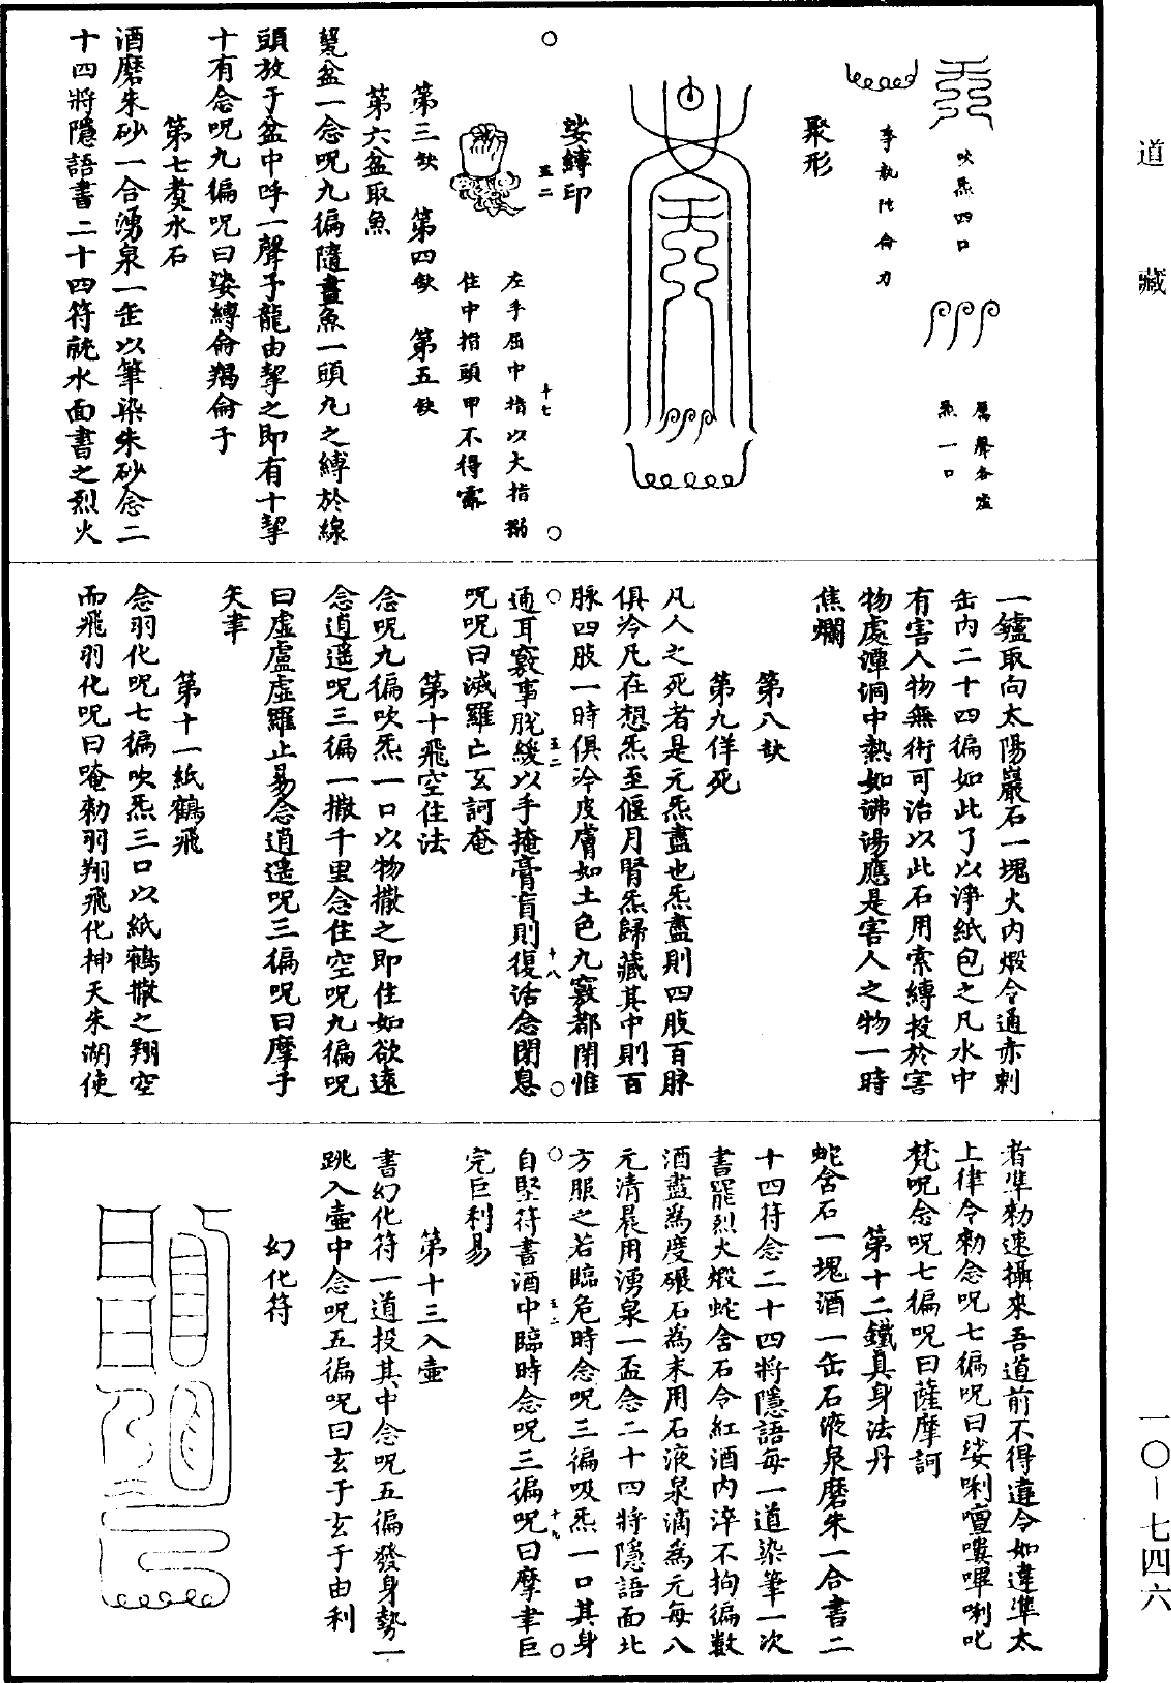 道藏
吹炁四口
厲聲各
炁一口
聚形
娑縛印
五二
左手屈中指以大指
十七
住中指頭甲不得露
第三缺　第四缺　第五缺
第六盆取魚
甕盆一念呪九徧隨畫魚一頭九之縛於線
頭放于盆中呼一聲子龍由掣之即有十掣
十有念呪九徧呪曰娑縛侖羯侖于
第七煑水石
酒磨朱砂一合湧泉一缶以筆染朱砂念二
十四將隱語書二十四符就水面書之烈火
一鑪取向太陽巖石一塊火内煅令通赤剌
缶内二十四徧如此了以淨紙包之凡水中
有害人物無術可治以此石用索縛投於害
物處潭洞中熱如沸湯應是害人之物一時
焦爛
第八缺
第九佯死
凡人之死者是元炁盡也炁盡則四肢百脉
俱冷凡在想炁至偃月腎炁歸藏其中則百
脉四肢一時俱冷皮膚如土色九竅都閉惟
五二
十八
通耳竅事脫緩以手掩膏肓則復活念閉息
呪呪曰滅羅亡玄訶庵
第十飛空住法
念呪九徧吹炁一口以物撒之即住如欲遠
念逍遥呪三徧一撒千里念住空呪九徧呪
曰虛盧虛羅止易念逍遥呪三徧呪曰摩于
矢聿
第十一紙鶴飛
念羽化呪七徧吹炁三口以紙鶴撒之翔空
而飛羽化呪曰唵勑羽翔飛化神天朱湖使
者準勑速攝來吾道前不得違令如違準太
上律令勑念呪七徧呪曰娑唎嘽嘍嗶唎叱
梵呪念呪七徧呪曰薩摩訶
第十二鐵真身法丹
蛇含石一塊酒一缶石液泉磨朱一合書二
十四符念二十四將隱語每一道染筆一次
書罷烈火煅蛇含石令紅酒内淬不拘徧數
酒盡為度碾石為末用石液泉滴為元每八
元清晨用湧泉一盃念二十四將隱語面北
方服之若臨危時念呪三徧吸炁一口其身
五二
十九
自堅符書酒中臨時念呪三徧呪曰摩聿巨
完巨利易
第十三入壺
書幻化符一道投其中念呪五徧發身勢一
跳入壺中念呪五徧呪曰玄于玄于由利
幻化符
一〇—七四六